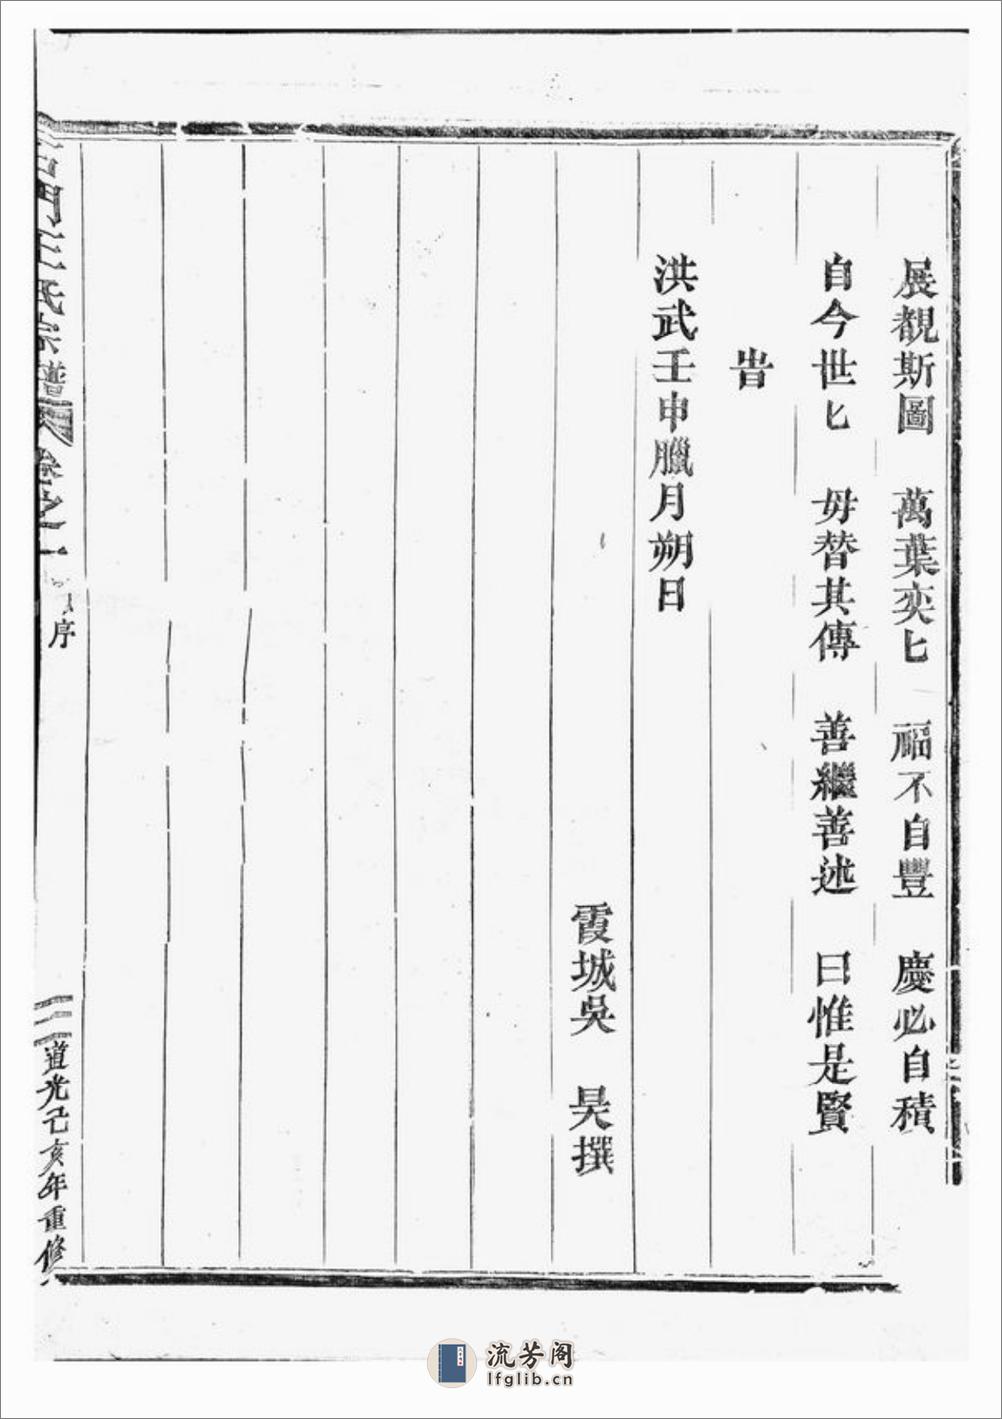 展覩斯圖　萬葉奕匕　福不自豐　慶必自積
自今世匕　毋替其傳　善繼善述　曰惟是賢
旹
洪武壬申臘月朔日
霞城吳　昊撰
石門王氏宗譜　卷之一　序　道光己亥年重修
流芳阁
lfglib.cn